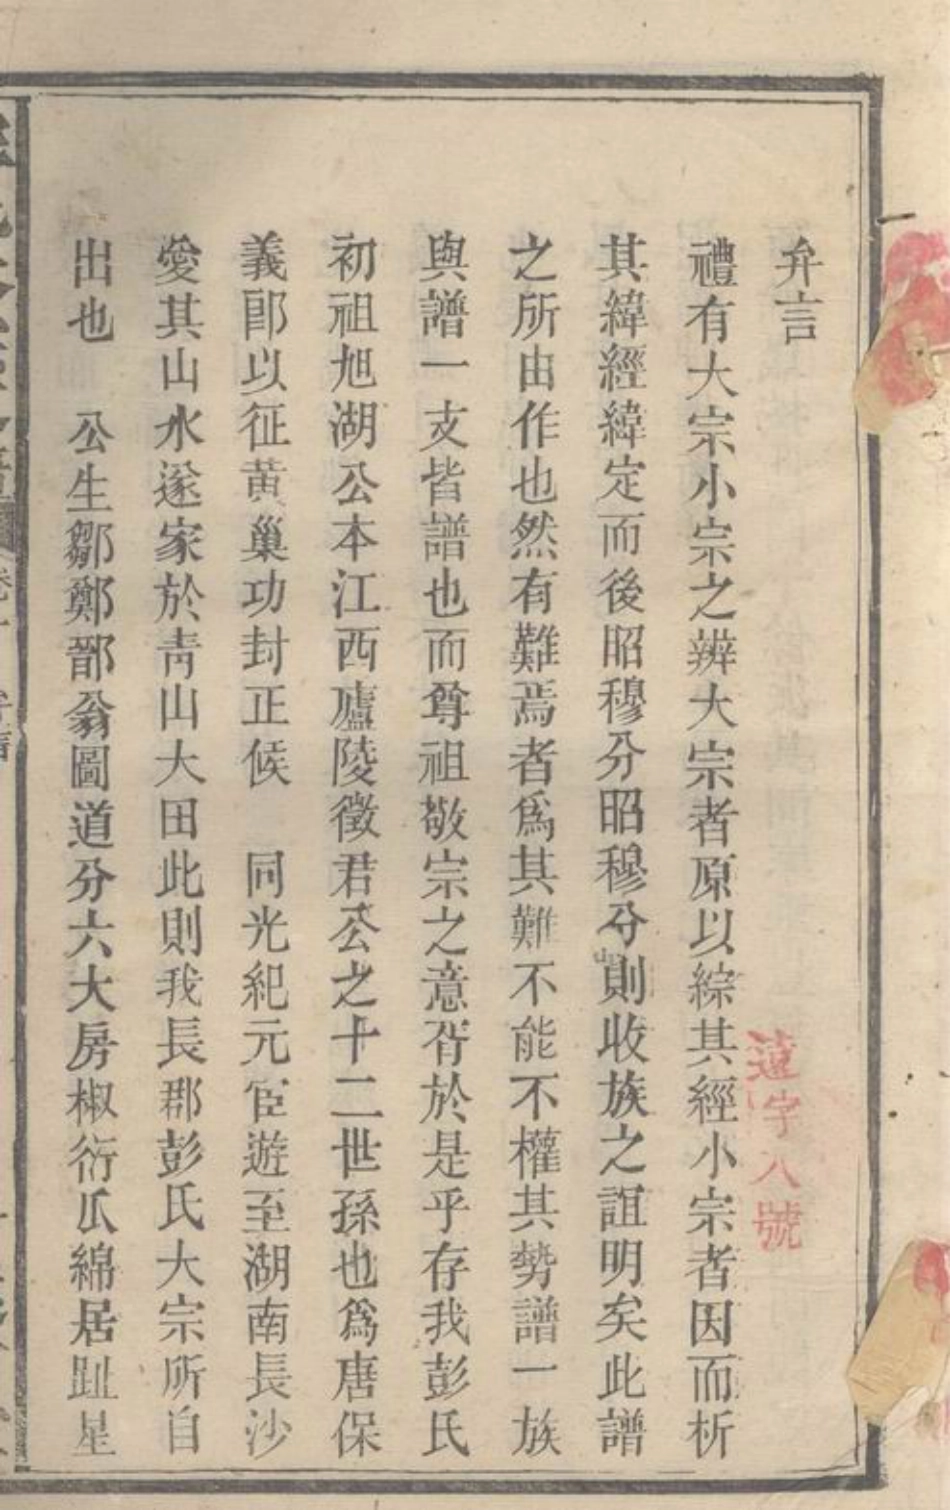 弁言
禮有大宗小宗之辨大宗者原以綜其經小宗者因而析
其緯經緯定而後昭穆分昭穆分則收族之誼明矣此譜
之所由作也然有難焉者爲其難不能不權其勢譜一族
與譜一支皆譜也而尊祖敬宗之意胥於是乎存我彭氏
初祖旭湖公本江西廬陵徵君公之十二世孫也爲唐保
義郎以征黄巢功封正候 同光紀元宦遊至湖南長沙
愛其山水遂家於靑山大田此則我長郡彭氏大宗所自
出也 公生鄒鄭鄑翁圖道分六大房椒衍瓜綿居趾星
遠字八號